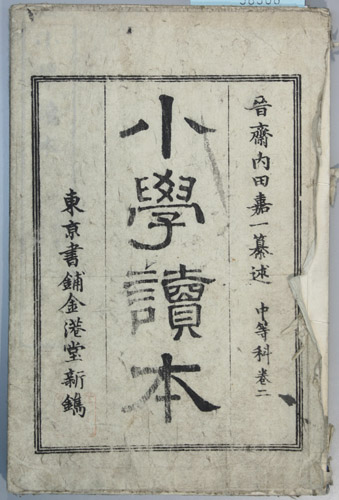 晋齋内田嘉一纂述 中等科卷二
小學讀本
東京書鋪金港堂新鐫